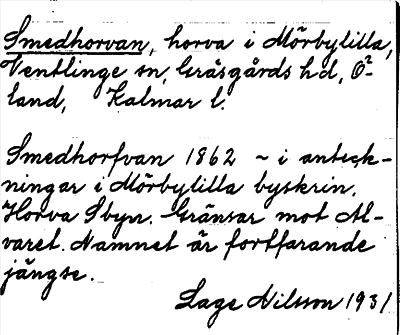 Smedhorvan, horva i Mörbylilla,
Ventlinge sn, Gräsgårds hd, Ö-
land, Kalmar l.
Smedhorfvan 1862 ~ i anteck-
ningar i Mörbylilla byskrin.
Horva S byn. Gränsar mot Al-
varet. Namnet är fortfarande
jängse.
Lage Nilsson 1931